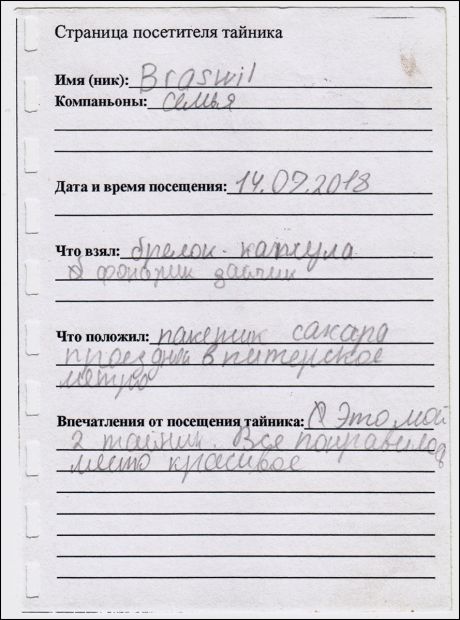 Страница посетителя тайника
Имя (ник): Braswil
Компаньоны: семья
Дата и время посещения: 14.07.2018
Что взял: брелок-капсула
фонарик
Что положил: пакетик сахара
проездной в питерское
метро
Впечатления от посещения тайника: Это мой
2 тайник. Все понравилось
место красивое